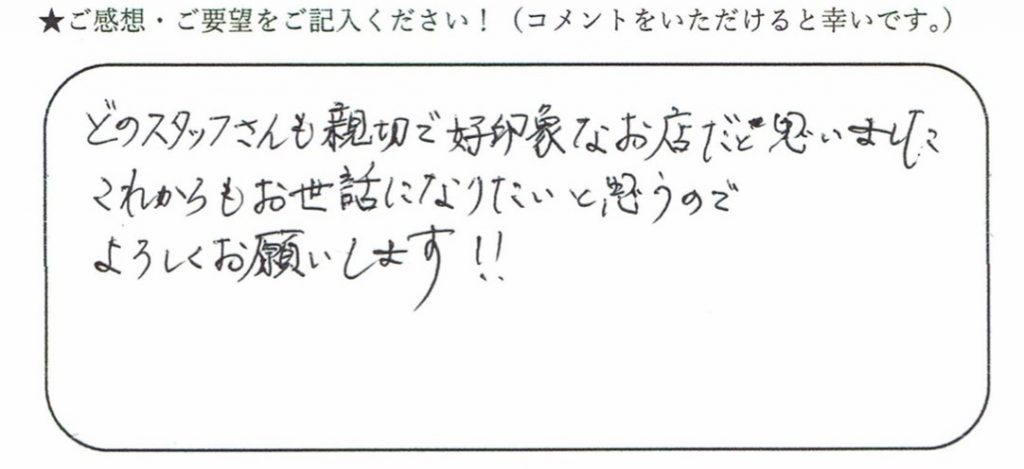 ★ご感想・ご要望をご記入ください！（コメントをいただけると幸いです。）
どのスタッフさんも親切で好印象なお店だと思いました
これからもお世話になりたいと思うので
よろしくお願いします!!